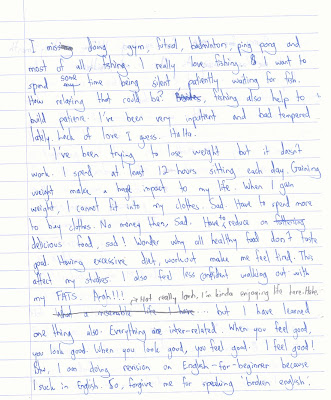 I miss doing gym, futsal, badminton, ping pong and
most of all fishing. I really love fishing & I want to
spend some time being silent patiently waiting for fish.
How relaxing that could be? fishing also help to
build patience. I've been very inpatient and bad tempered
lately. Lack of love I guess. Haha.
I've been trying to lose weight but it doesn't
work. I spend at least 12-hours sitting each day. Gaining
weight make a huge impact to my life. When I gain
weight, I cannot fit into my clothes. Sad. Have to spend more
to buy clothes. No money then, Sad. Have to reduce on
delicious food, sad! Wonder why all healthy food don't taste
good. Having excessive diet, workout make me feel tired. This
affect my studies. I also feel less confident walking out with
my FATS. Argh!!! * Not really lands, I'm kinda enjoying life here. Haha.
What a miserable life I have... but I have learned
one thing also. Everything are inter-related. When you feel good,
you look good. When you look good, you feel good. I feel good!
I am doing revision on English-for-beginner because
I suck in English. So, forgive me for speaking broken english.